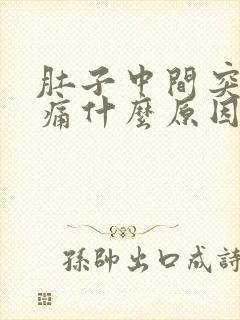 肚子中間突
痛什麼原因
孫帥出口成詩